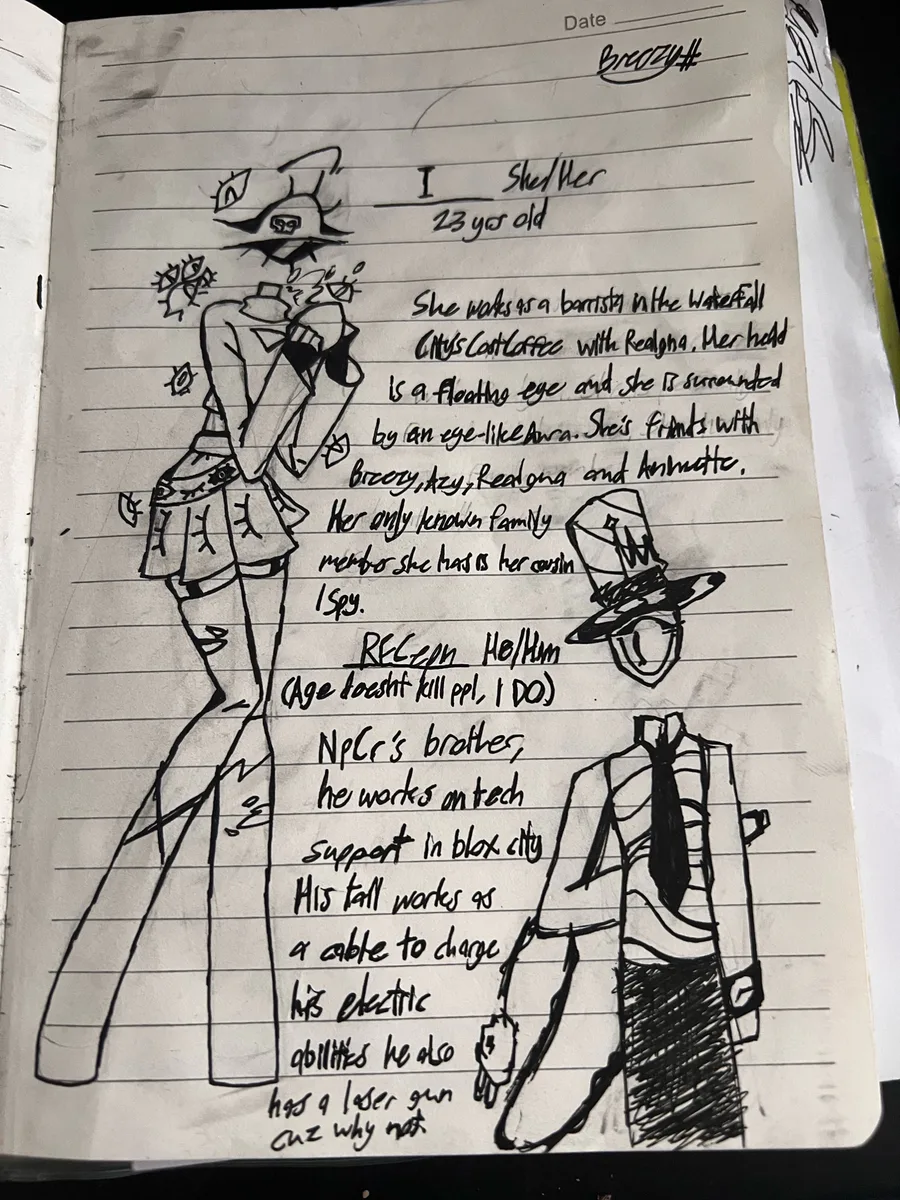 Date
Breezy#
I She/Her
23 yrs old
She works as a barrista in the Waterfall
City's Cost Coffee with Realgna. Her head
is a floating eye and she is surrounded
by an eye-like Aura. She's friends with
Breezy, Azy, Realgna and
Her only known family
member she has is her cousin
I Spy.
He/Him
(Age doesn't kill ppl, I DO)
NpCr's brother,
he works on tech
support in blox city
His tail works as
a cable to charge
his electric
abilities he also
has a laser gun
cuz why not